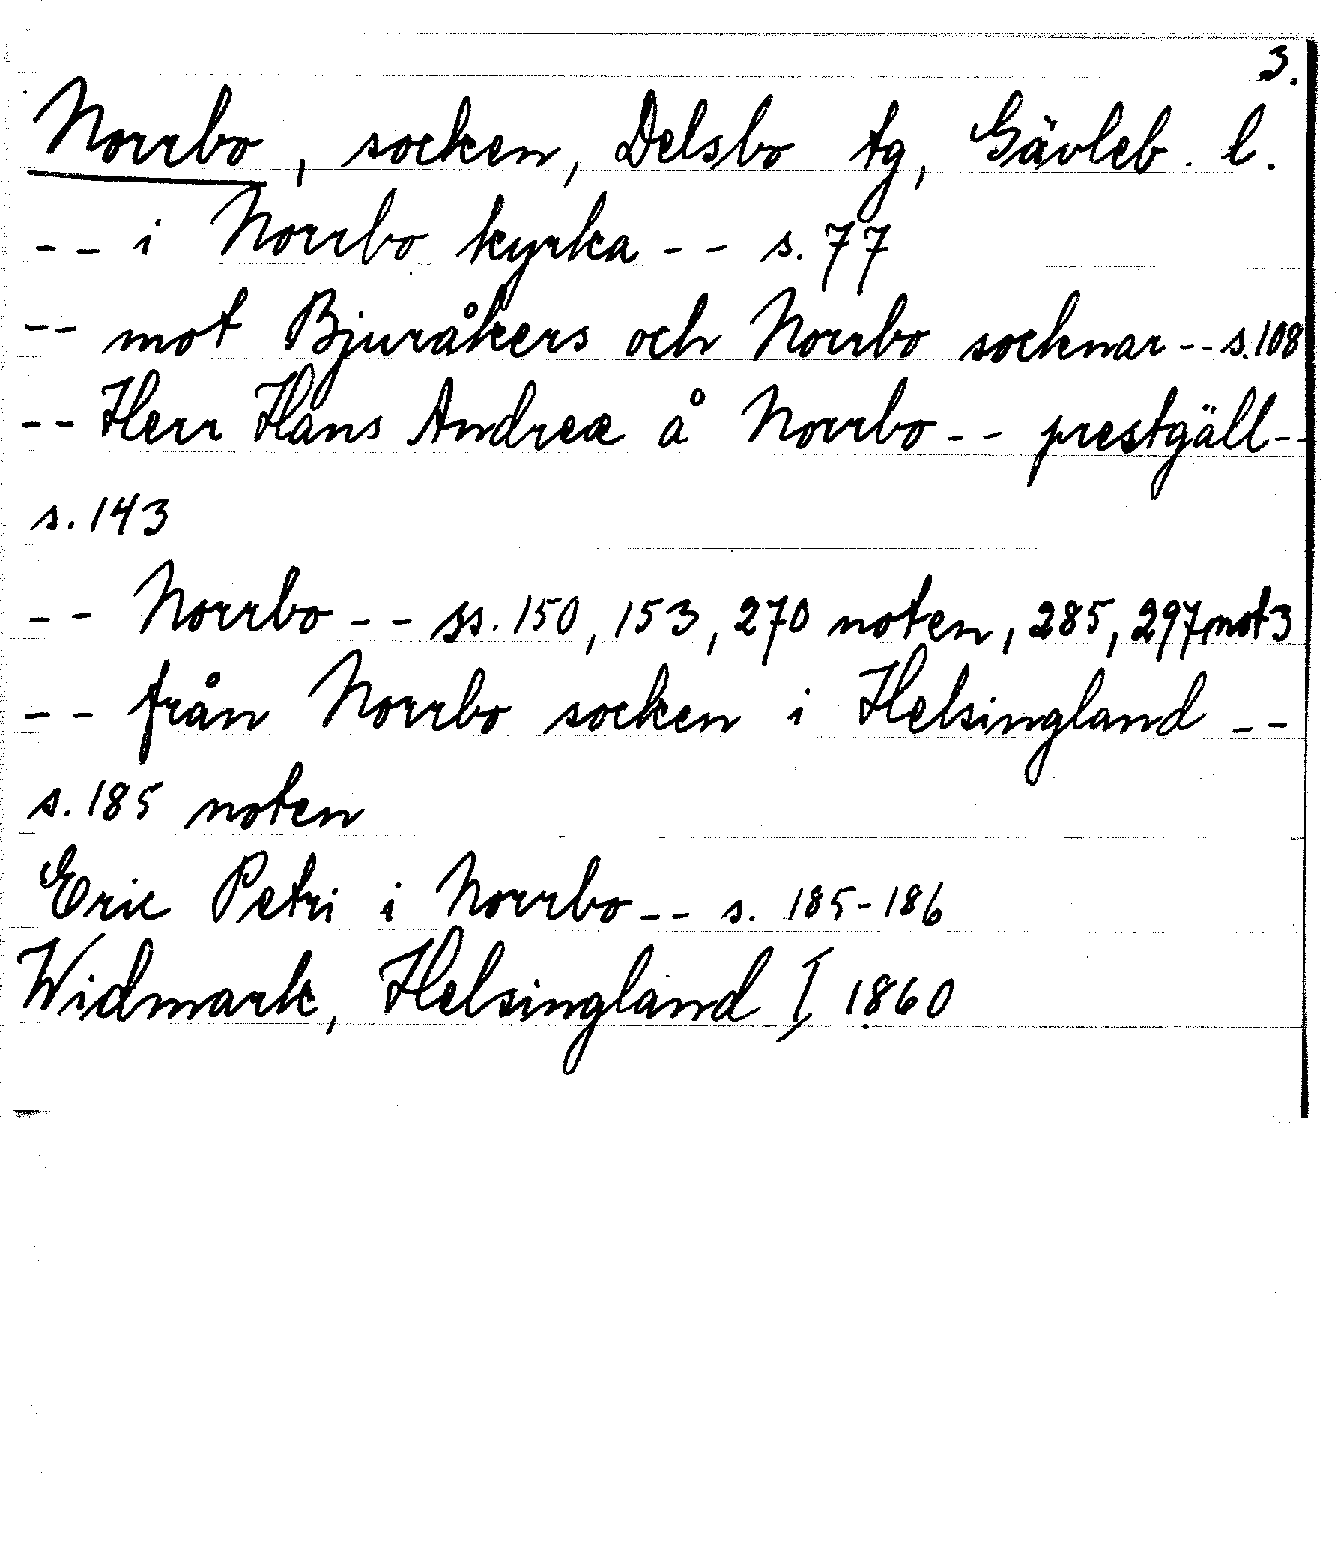 3.
Norrbo, socken, Delsbo tg, Gävleb. l.
-- i Norrbo kyrka -- s. 77
-- mot Bjuråkers och Norrbo socknar -- s. 108
-- Herr Hans Andreæ å Norrbo -- prestgäll --
s. 143
-- Norrbo -- ss. 150, 153, 270 noten, 285, 297, not 3
-- från Norrbo socken i Helsingland --
s. 185 noten
Eric Petri i Norrbo -- s. 185-186
Widmark, Helsingland I 1860